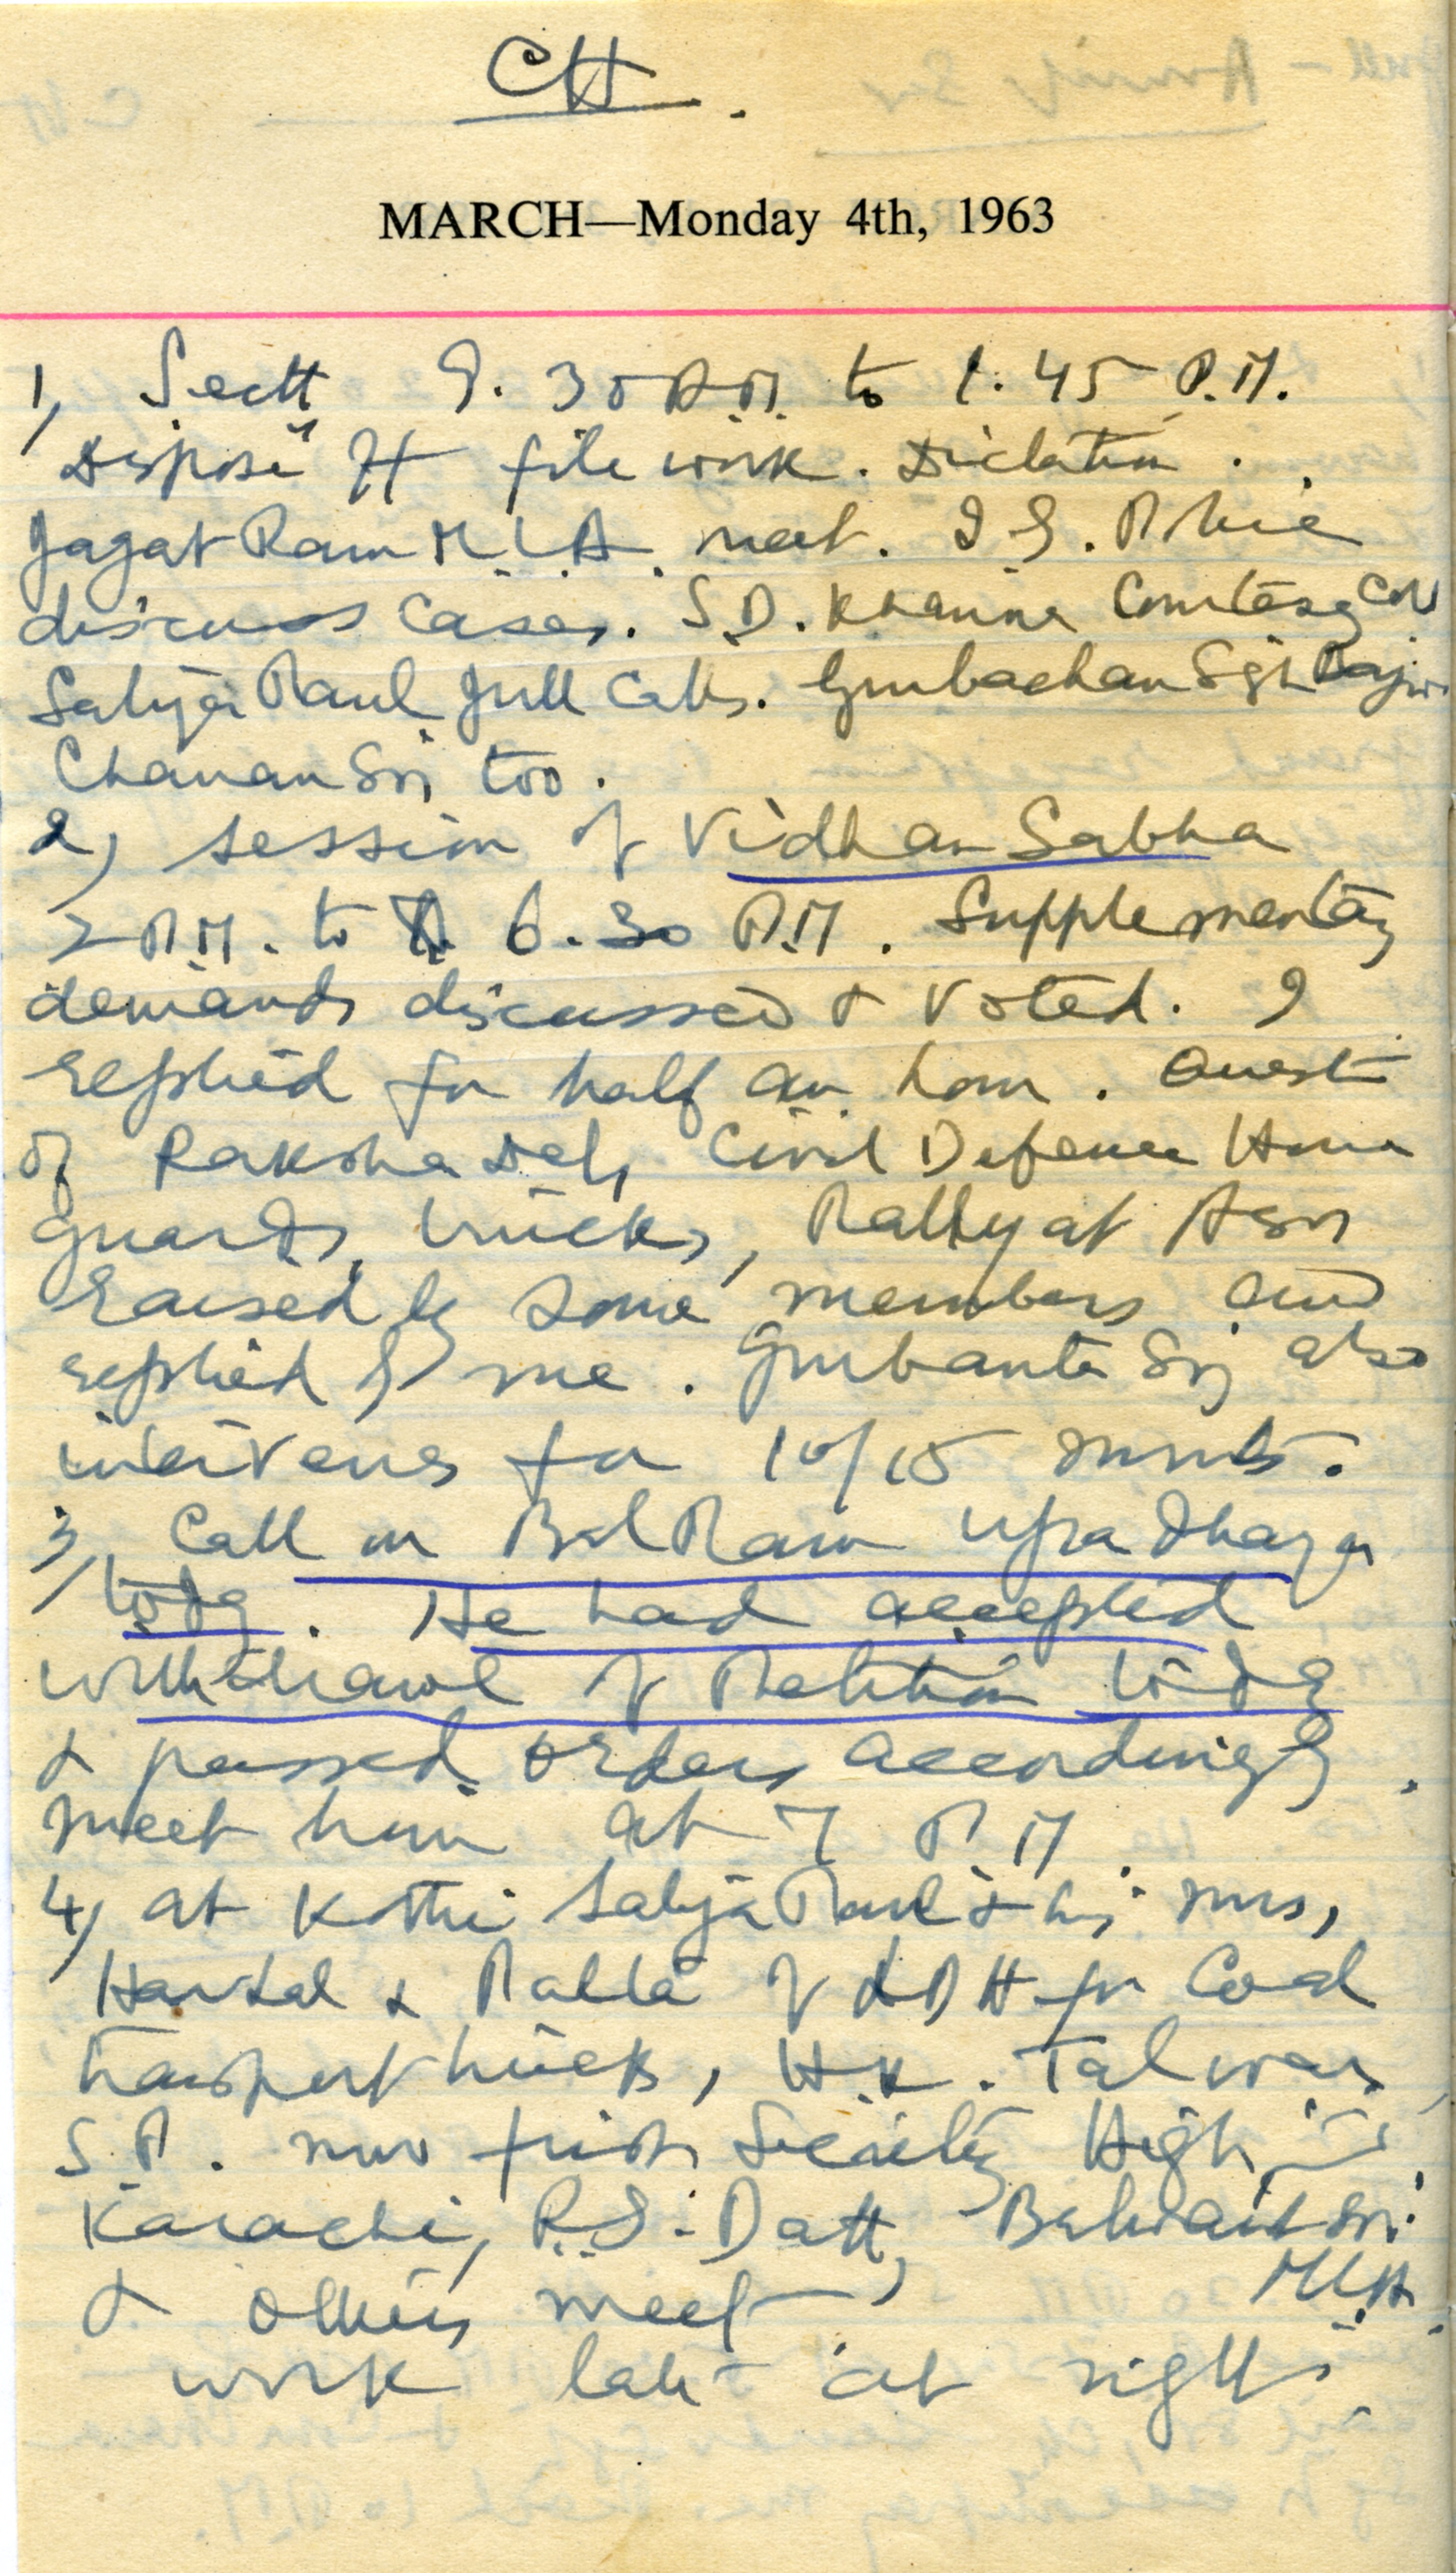 CH.
MARCH—Monday 4th, 1963
1) Sectt 9.30 A.M. to 1.45 P.M.
Dispose off file work. Dictation.
Jagat Ram M.L.A. meet. I.G. Police
discuss cases. S.D. Khanna Courtesy Call
Satya Paul Gill Calls. Gurbachan Sgh Bajwa
Chanan Sri too.
2) Session of Vidhan Sabha
2 P.M. to 6.30 P.M. Supplementary
demands discussed & voted. I
replied for half an hour. Quest
of Raksha Dal, Civil Defence Home
guards, trucks, Rally at Asr
raised by some members and
replied by me. Gurbanta Sri also
intervenes for 10/15 mnts.
3) Call on Bal Ram Upadhaya
today. He had accepted
withdrawl of Petition today
& passed orders accordingly.
meet him at 7 P.M.
4) at Kothi Satya Paul & his
& Ralla of LDH for Coal
transport trucks, H.K. Talwar,
S.P. now Security High
Karachi, R.S. Datt, Balwant Sri
M.L.A.
& others meet
work late at night.